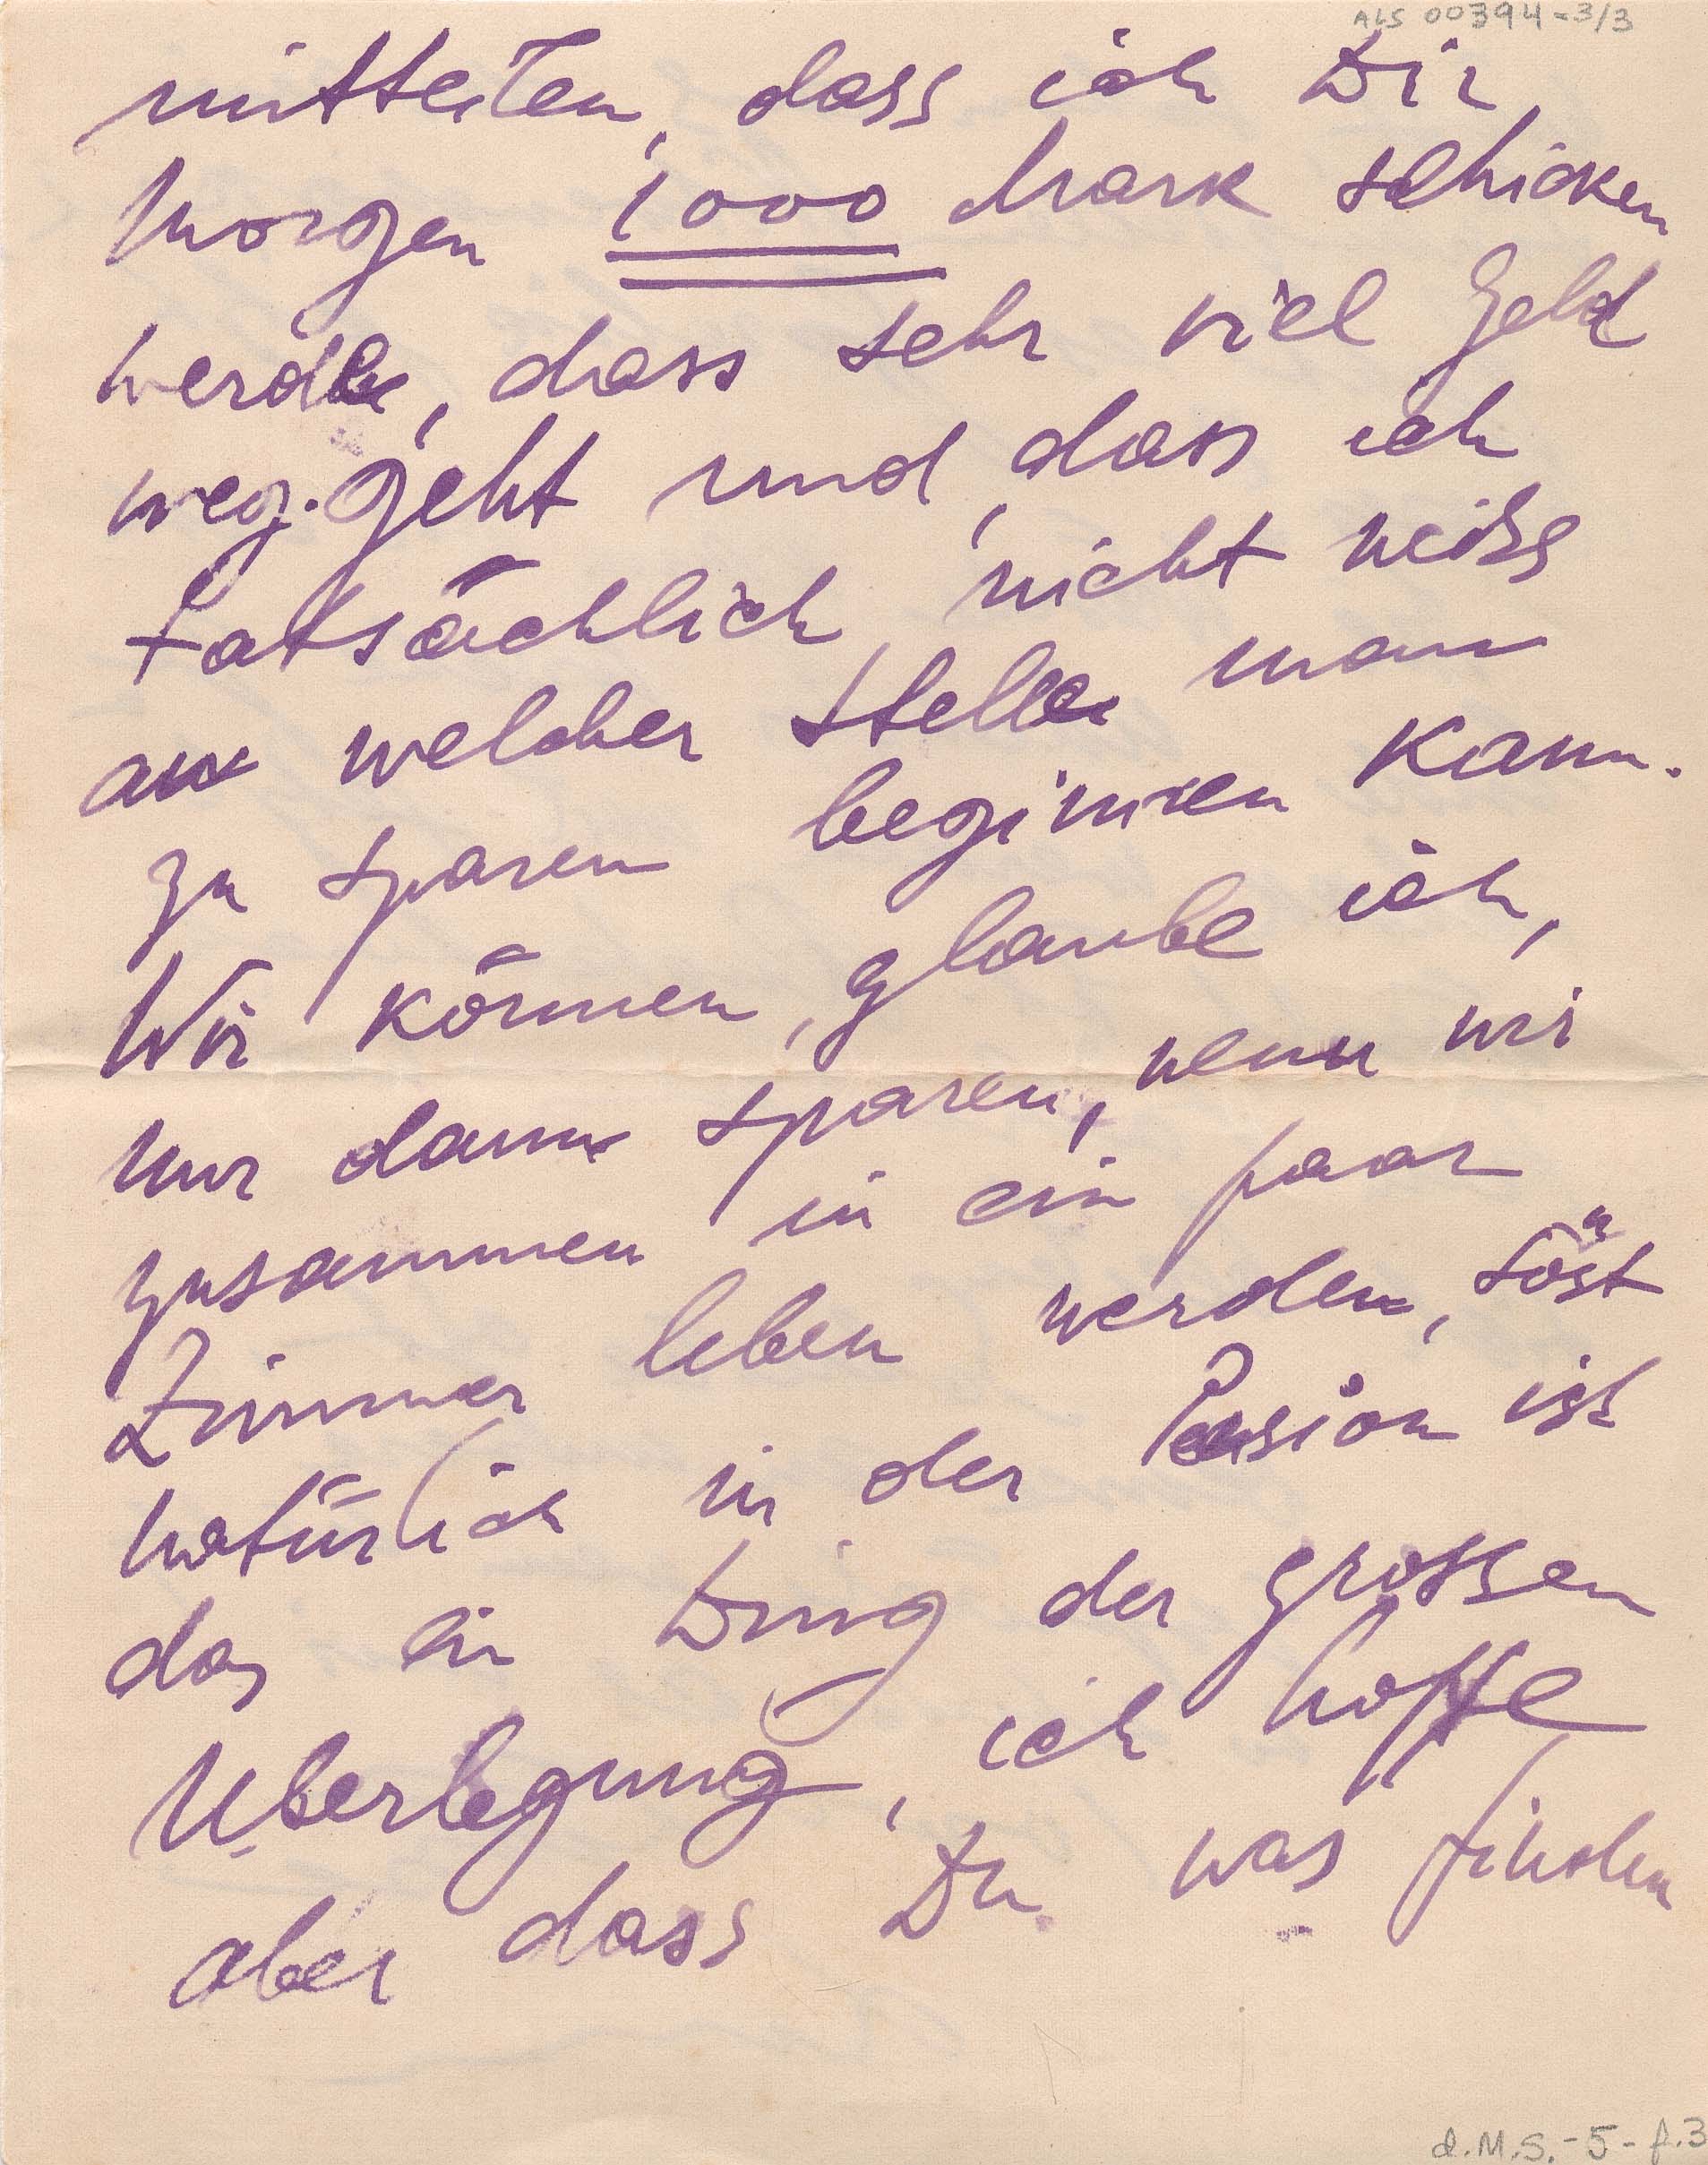 ALS 00394-3/3
mitteilen, dass ich Dir
morgen 1000 Mark schicken
werde, dass sehr viel Geld
weg. geht und, dass ich
tatsächlich nicht weiss
an welcher Stelle man
zu sparen beginnen kann.
Wir können, glaube ich,
nur dann sparen, wenn wir
zusammen in ein paar
Zimmer leben werden, "sost
natürlich in der Pension ist
das ein Ding der grossen
Überlegung, ich hoffe
aber dass Du was finden
d.M.S.-5-f.3